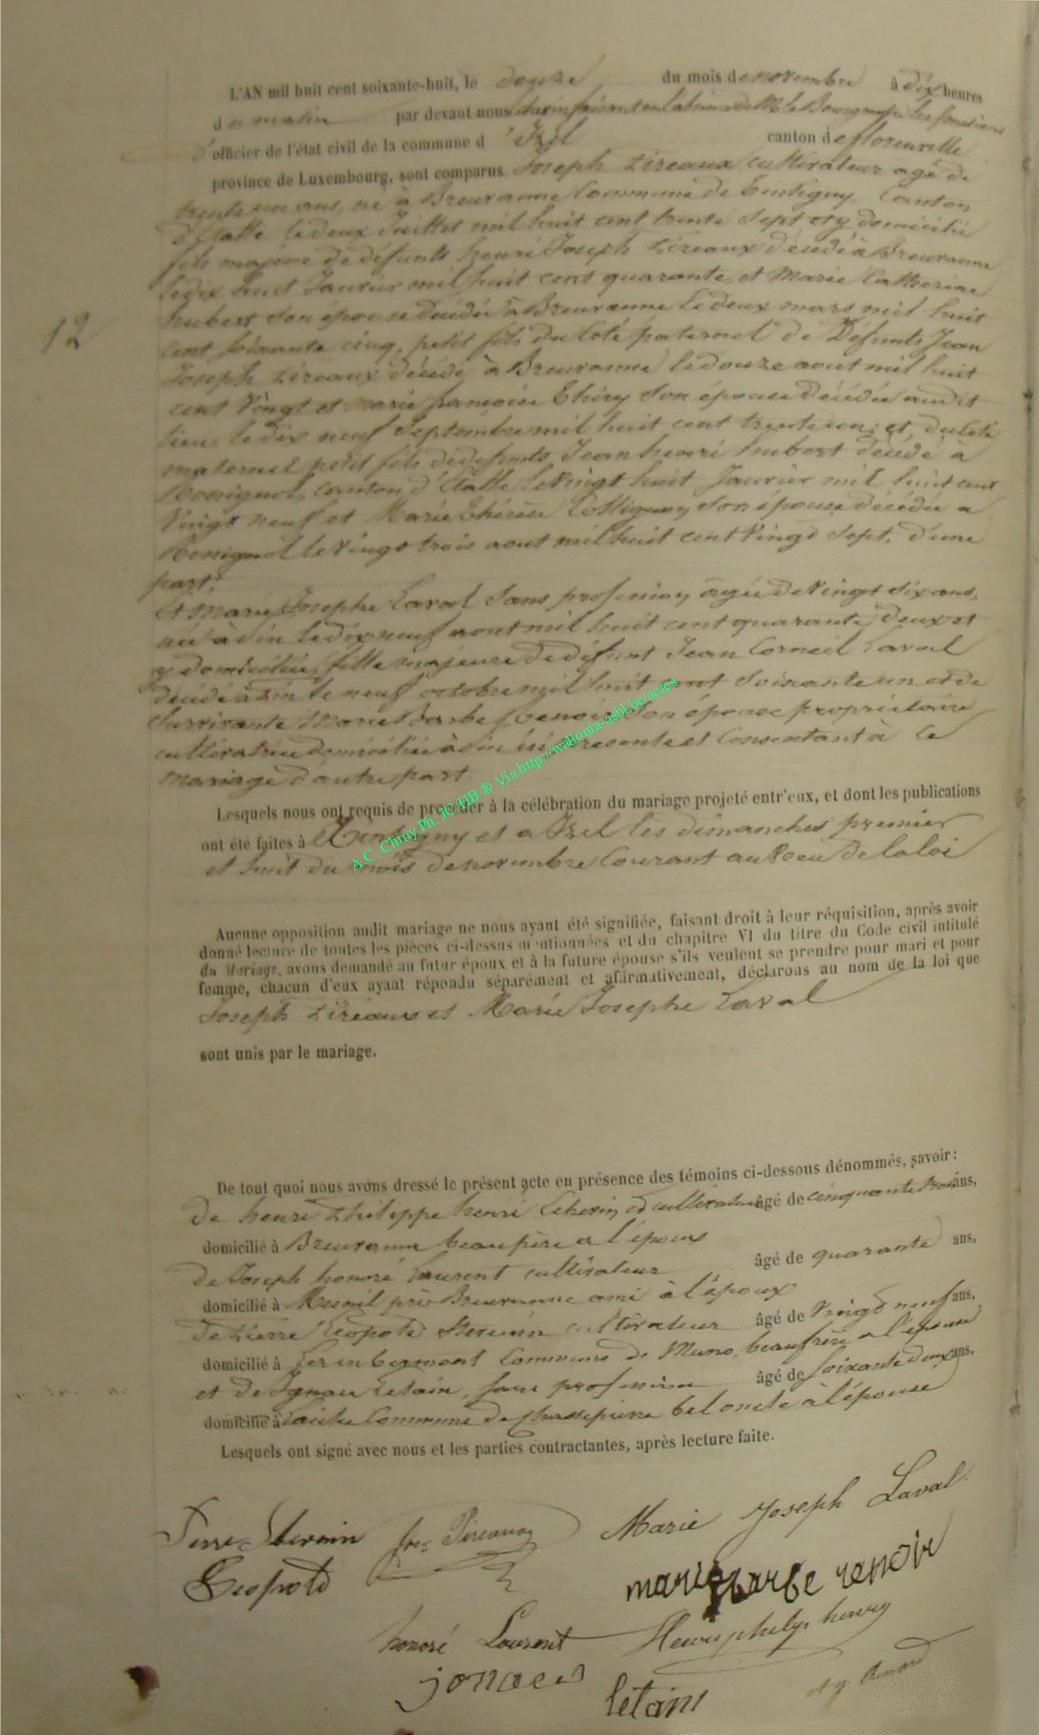 L'AN mil huit cent soixante-huit, le douze du mois de novembre à dix heures
du matin par devant nous Echevin faisant en l'absence de M. le Bourgmestre les fonctions
d'officier de l'état civil de la commune d'Izel canton de florenville
province de Luxembourg, sont comparus Joseph Pireaux cultivateur agé de
trente un ans, né à Breuvanne Commune de Tintigny, Canton
d'Etalle le deux Juillet mil huit cent trente Sept et y domicilié
fils majeur de défunts henri Joseph Pireaux décédé à Breuvanne
le dix huit Janvier mil huit cent quarante, et Marie Catherine
hubert Son épouse décédée à Breuvanne le deux mars mil huit
cent soixante cinq, petit fils du Coté paternel de Défunts Jean
Joseph Pireaux décédé à Breuvanne le douze aout mil huit
cent Vingt et Marie françoise Thiry Son épouse décédée audit
lieu le dix neuf Septembre mil huit cent trente un; et, du coté
maternel petit fils de défunts Jean henri hubert décédé à
Rossignol, canton d'Etalle le Vingt huit Janvier mil huit cent
Vingt neuf et Marie Thérèse Son épouse décédée a
Rossignol le Vingt trois aout mil huit cent Vingt Sept, d'une
part;
Et Marie Josephe Laval Sans profession agée de Vingt Six ans,
née à Pin le dix neuf aout mil huit cent quarante deux et
y domiciliée, fille majeure de défunt Jean Corneil Laval
décédé à Pin le neuf octobre mil huit cent Soixante un et de
Survivante Marie Barbe Renoir Son épouse propriétaire
cultivatrice domiciliée à Pin ici présente et Consentant à ce
mariage d'autre part.
Lesquels nous ont requis de procéder à la célébration du mariage projeté entr'eux, et dont les publications
ont été faites à Tintigny et a Izel les dimanches premier
et huit du mois de novembre Courant au Voeu de la loi
A.C. Chiny Ph. JC-HB ® Via http://wallonia-asbl.be/actes
Aucune opposition audit mariage ne nous ayant été signifiée, faisant droit à leur réquisition, après avoir
donné lecture de toutes les pièces ci-dessus mentionnées et du chapitre VI du titre du Code civil intitulé
du Mariage, avons demandé au futur époux et à la future épouse s'ils veulent se prendre pour mari et pour
femme, chacun d'eux ayant répondu séparément et afirmativement, déclarons au nom de la loi que
Joseph Pireaux et Marie Josephe Laval
sont unis par le mariage.
12
De tout quoi nous avons dressé le présent acte en présence des témoins ci-dessous dénommés, savoir:
De henri Philippe henri cultivateur âgé de cinquante trois ans,
domicilié à Breuvanne beau père a l'époux
de Joseph honoré Laurent cultivateur âgé de quarante ans,
domicilié à Mesnil près Breuvanne ami à l'époux
de Pierre Léopold Sternin cultivateur âgé de Vingt neuf ans,
domicilié à Commune de Muno, beaufrère a l'épouse
et de Ignace Letain, sans profession âgé de soixante deux ans,
domicilié à Laiche Commune de Chassepierre bel oncle à l'épouse
Lesquels ont signé avec nous et les parties contractantes, après lecture faite.
Pierre Sternin Jos. Pireaux Marie Joseph Laval
Léopold
marie barbe renoir
honoré Laurent Henri philip henry
ignace letain